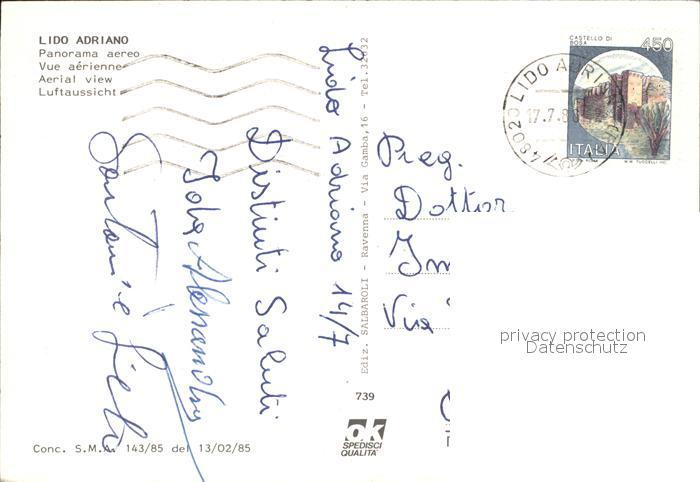 LIDO ADRIANO
Panorama aereo
Vue aérienne
Aerial view
Luftaussicht
Lido Adriano 14/7
Distinti Saluti
Ediz. SALBAROLI - Ravenna - Via Gamba,16 - Tel.32032
CASTELLO DI
BOSA
450
ITALIA
48020 LIDO ADRI
17.7.8
Preg.
Dottor
Via
privacy protection
Datenschutz
739
ok
SPEDISCI
QUALITA'
Conc. S.M.A. 143/85 del 13/02/85